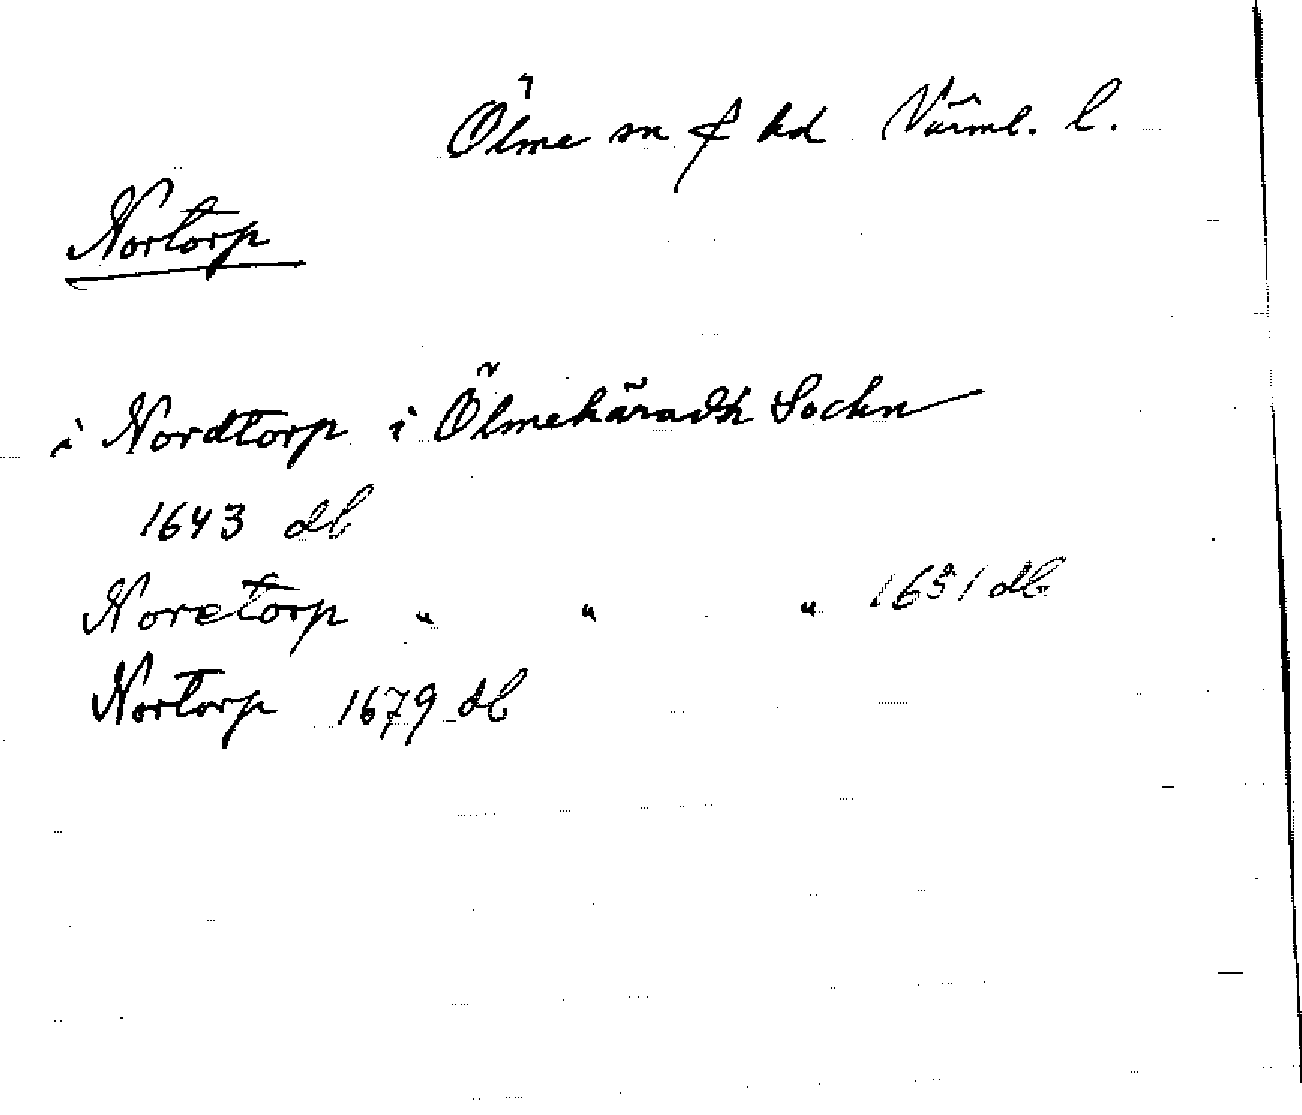 Ölme sn & hd Värml. l.
Nortorp
i Nordtorp i Ölmehäradh Sockn
1643 db
Noretorp " " " 1651 db
Nortorp 1679 db